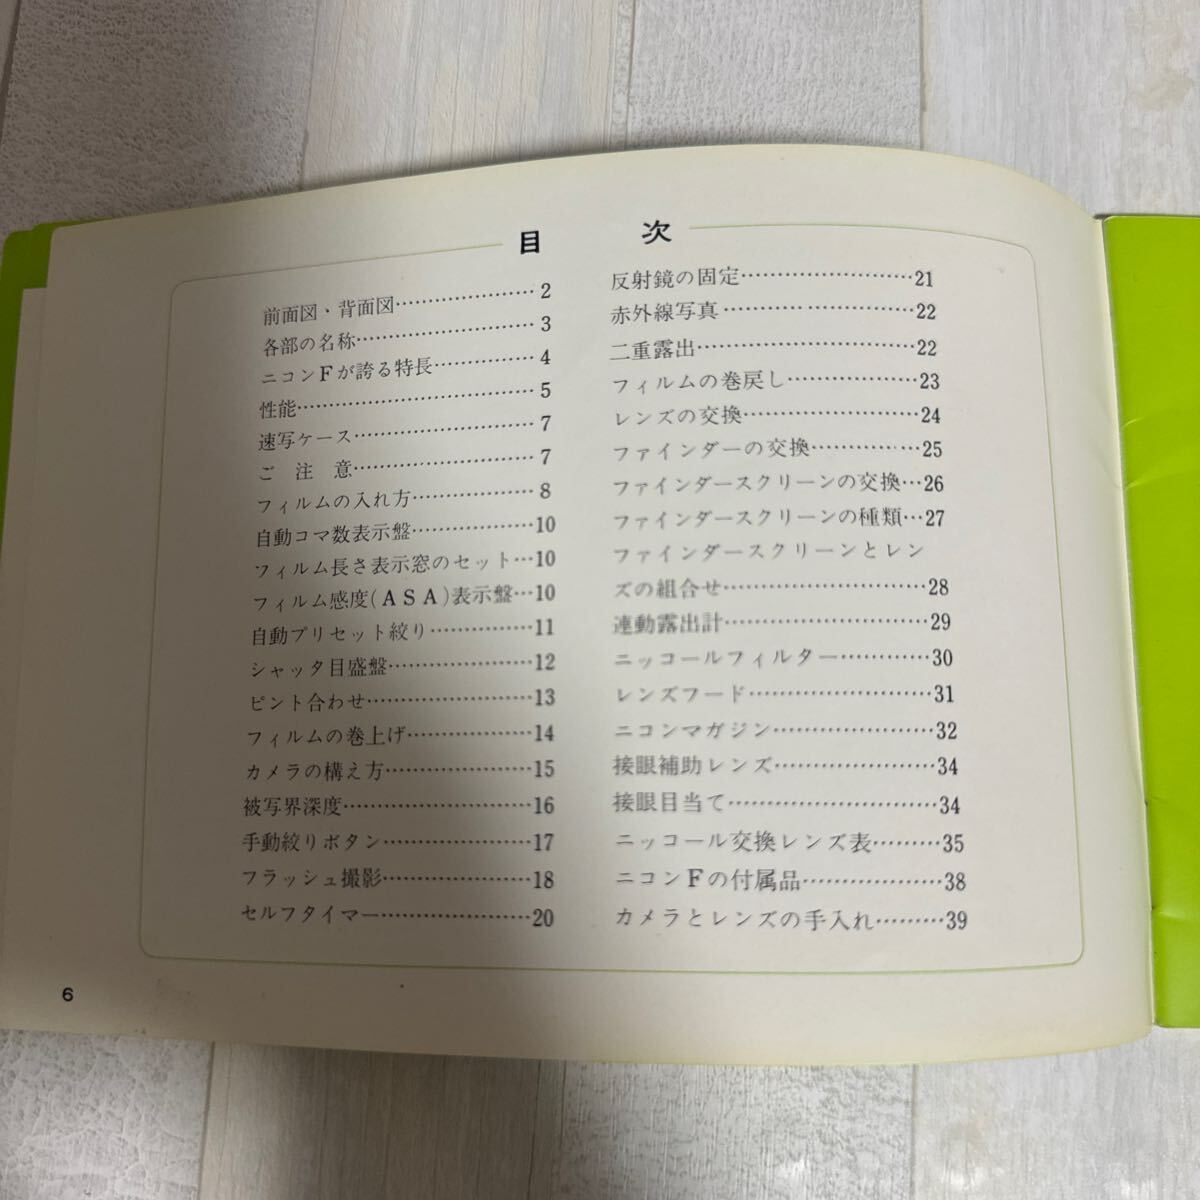 目次
前面図・背面図……………………2
各部の名称…………………………3
ニコンFが誇る特長………………4
性能…………………………………5
速写ケース…………………………7
ご注意………………………………7
フィルムの入れ方…………………8
自動コマ数表示盤…………………10
フィルム長さ表示窓のセット…10
フィルム感度(ASA)表示盤…10
自動プリセット絞り………………11
シャッタ目盛盤……………………12
ピント合わせ………………………13
フィルムの巻上げ…………………14
カメラの構え方……………………15
被写界深度…………………………16
手動絞りボタン……………………17
フラッシュ撮影……………………18
セルフタイマー……………………20
反射鏡の固定………………………21
赤外線写真…………………………22
二重露出……………………………22
フィルムの巻戻し…………………23
レンズの交換………………………24
ファインダーの交換………………25
ファインダースクリーンの交換…26
ファインダースクリーンの種類…27
ファインダースクリーンとレン
ズの組合せ…………………………28
連動露出計…………………………29
ニッコールフィルター……………30
レンズフード………………………31
ニコンマガジン……………………32
接眼補助レンズ……………………34
接眼目当て…………………………34
ニッコール交換レンズ表………35
ニコンFの付属品…………………38
カメラとレンズの手入れ………39
6